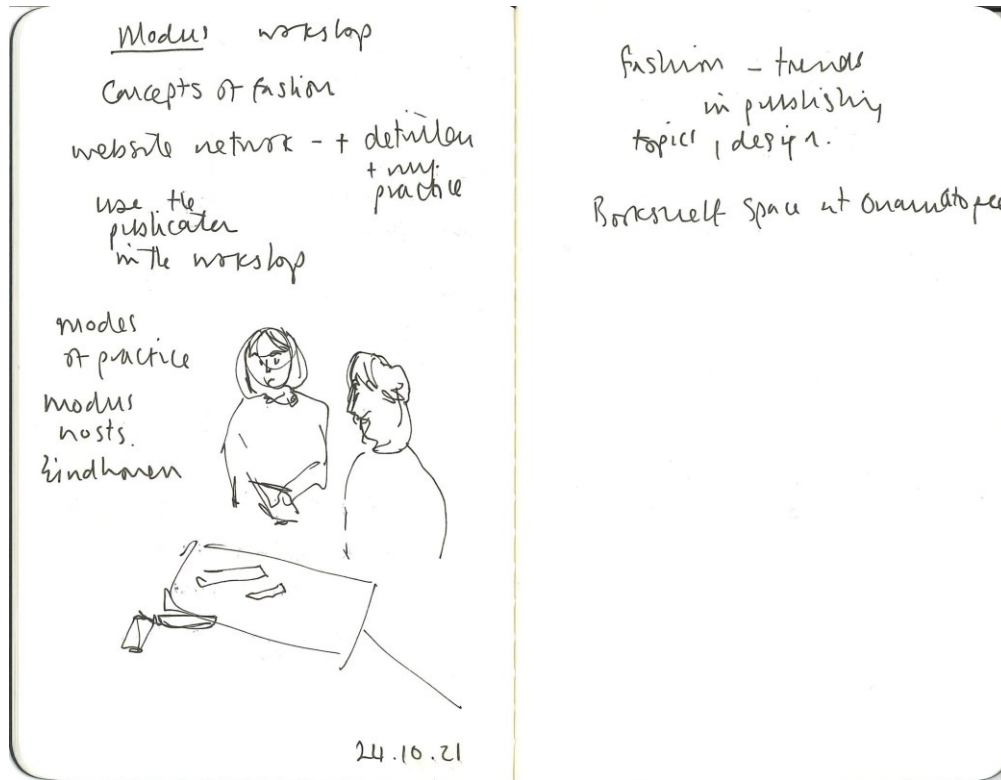 Modus workshop
Concepts of fashion
website network - + detritlen
+ my.
practice
use the
publication
in the workshop
modes
of practice
modus
hosts.
Eindhoven
24.10.21
fashion - trends
in publishing
topics, design.
Bookshelf space at Onomatopee